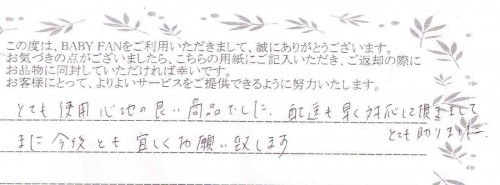 この度は、BABY FANをご利用いただきまして、誠にありがとうございます。
お気づきの点がございましたら、こちらの用紙にご記入いただき、ご返却の際に
お品物に同封していただければ幸いです。
お客様にとって、よりよいサービスをご提供できるように努力いたします。
とても使用心地の良い商品でした。配達も早く対応して頂きまして
とても助りました。
また今後とも宜しくお願い致します